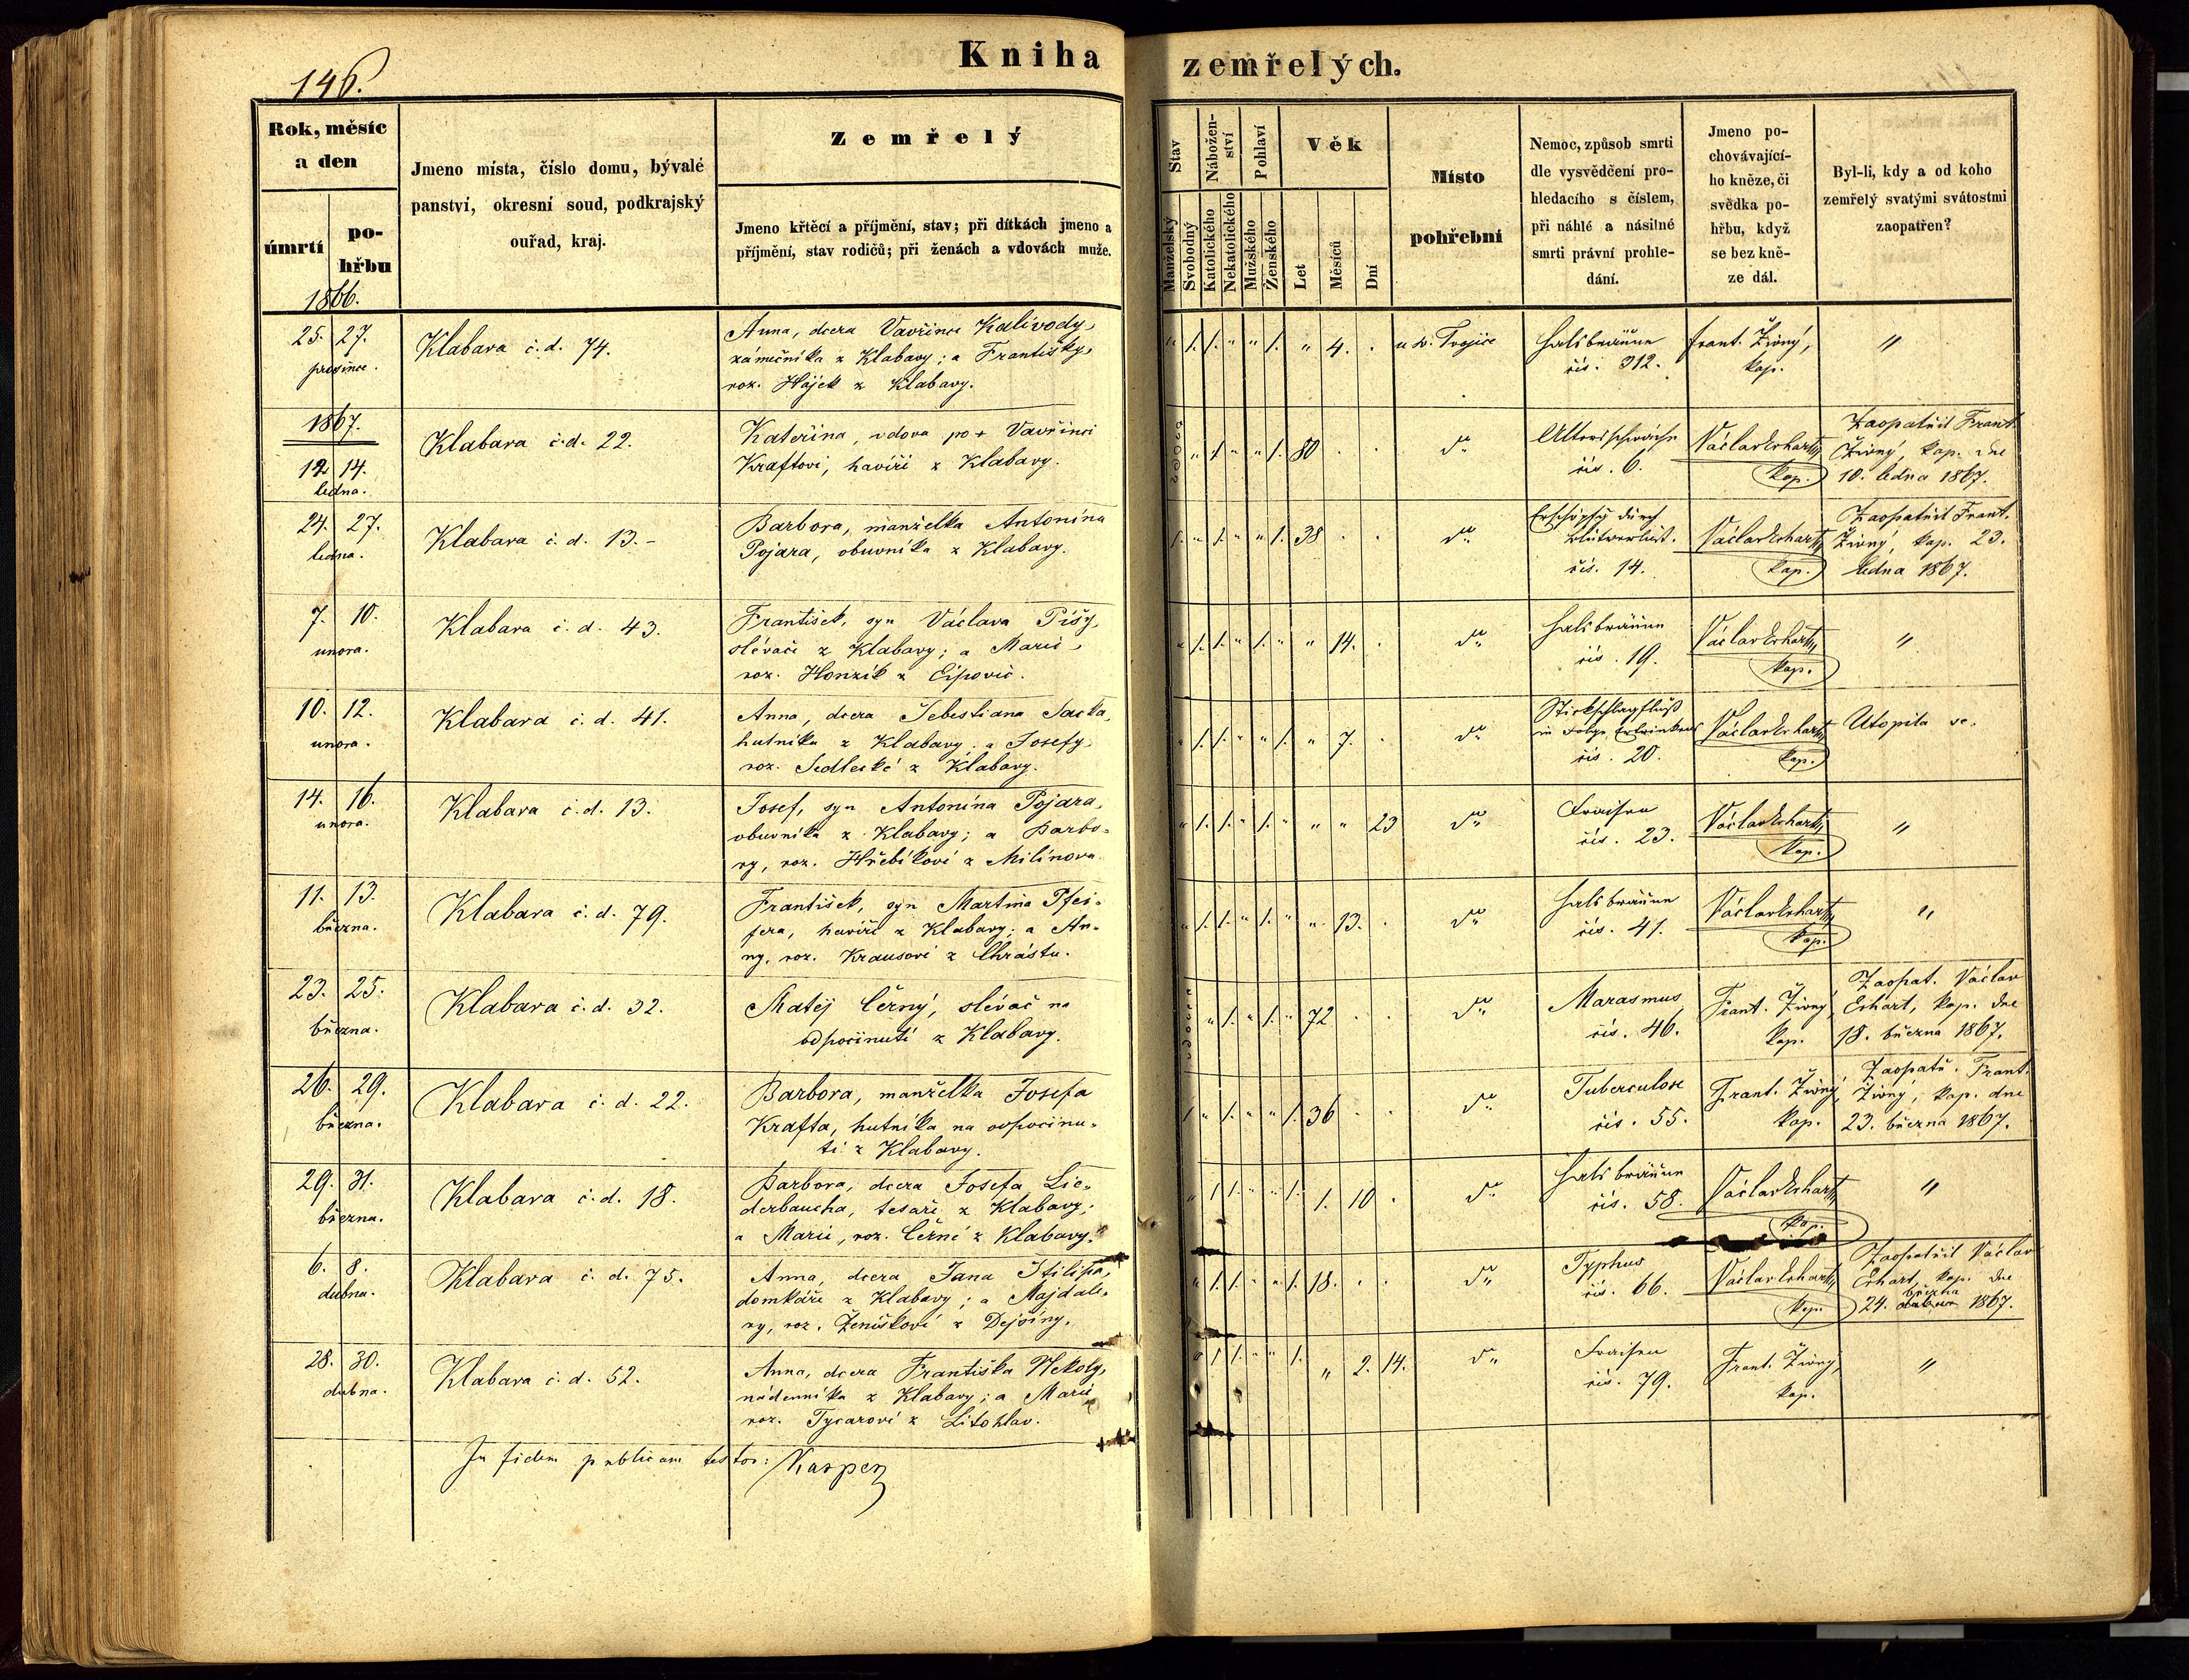 146.
Kniha zemřelých.
Rok, měsíc
a den
úmrtí
po-
hřbu
1866.
Jmeno místa, číslo domu, bývalé
panství, okresní soud, podkrajský
ouřad, kraj.
Zemřelý
Jmeno křtěcí a příjmění, stav; při dítkách jmeno a
příjmění, stav rodičů; při ženách a vdovách muže.
Stav
Manželský
Svobodný
Nábožen-
ství
Katolického
Nekatolického
Pohlaví
Mužského
Ženského
Věk
Let
Měsíců
Dní
Místo
pohřební
Nemoc, způsob smrti
dle vysvědčení pro-
hledacího s číslem,
při náhlé a násilné
smrti právní prohle-
dání.
Jmeno po-
chovávající-
ho kněze, či
svědka po-
hřbu, když
se bez kně-
ze dál.
Byl-li, kdy a od koho
zemřelý svatými svátostmi
zaopatřen?
25. 27.
prosince.
Klabava č. d. 74.
Anna, dcera Vavřince Kalivody,
zámečníka z Klabavy; a Františky,
roz. Hájek z Klabavy.
" 1. 1. " " 1. " 4. .
u sv. Trojice
Halsbräune
čís. 312.
Frant. Živný,
kap.
"
1867.
12. 14.
ledna.
Klabava č. d. 22.
Kateřina, vdova po + Vavřinci
Kraftovi, havíři z Klabavy.
vdova " 1. " " 1. 80 . .
dto
Altersschwäche
čís. 6.
Václav Erhart,
kap.
Zaopatřil Frant.
Živný, kap. dne
10. ledna 1867.
24. 27.
ledna.
Klabava č. d. 13. -
Barbora, manželka Antonína
Pojara, obuvníka z Klabavy.
1. " 1. " " 1. 38 . .
dto
Erschöpfg durch
Blutverlust.
čís. 14.
Václav Erhart,
kap.
Zaopatřil Frant.
Živný, kap. 23.
ledna 1867.
7. 10.
února.
Klabava č. d. 43.
František, syn Václava Píšy,
slévače z Klabavy; a Marie,
roz. Honzík z Ejpovic.
" 1. 1. " 1. " " 14. .
dto
Halsbräune
čís. 19.
Václav Erhart,
kap.
"
10. 12.
února.
Klabava č. d. 41.
Anna, dcera Šebestiana Sacka,
hutníka z Klabavy; a Josefy,
roz. Sedlecké z Klabavy.
" 1. 1. " " 1. " 7. .
dto
Stickschlagfluß
in Folge Ertrinkens
čís. 20.
Václav Erhart
kap.
Utopila se.
14. 16.
února.
Klabava č. d. 13.
Josef, syn Antonína Pojara,
obuvníka z Klabavy; a Barbo-
ry, roz. Hřebíkové z Milínova
" 1. 1. " 1. " " " 23
dto
Fraisen
čís. 23.
Václav Erhart,
kap.
"
11. 13.
března.
Klabava č. d. 79.
František, syn Martina Pfei-
fera, havíře z Klabavy; a An-
ny, roz. Krausové z Chrástu.
" 1. 1. " 1. " " 13. .
dto
Halsbräune
čís. 41.
Václav Erhart,
kap.
"
23. 25.
března.
Klabava č. d. 32.
Matěj Černý, slévač na
odpočinutí z Klabavy.
vdovec " 1. " 1. " 72 . .
dto
Marasmus,
čís. 46.
Frant. Živný
kap.
Zaopat. Václav
Erhart, kap. dne
18. března 1867.
26. 29.
března.
Klabava č. d. 22.
Barbora, manželka Josefa
Krafta, hutníka na odpočinu-
tí z Klabavy.
1 " 1. " " 1. 36 . .
dto
Tuberculose
čís. 55.
Frant. Živný,
kap.
Zaopatř. Frant.
Živný, kap. dne
23. března 1867.
29. 31.
března.
Klabava č. d. 18.
Barbora, dcera Josefa Lie-
derbaucha, tesaře z Klabavy;
a Marie, roz. Černé z Klabavy.
" 1 1. " " 1. 1. 10 .
dto
Halsbräune
čís. 58.
Václav Erhart,
kap.
"
6. 8.
dubna.
Klabava č. d. 75.
Anna, dcera Jana Filipa,
domkáře z Klabavy; a Majdalé-
ny, roz. Ženíškové z Dejšiny.
" 1. 1. " " 1. 18. . .
dto
Typhus
čís. 66.
Václav Erhart,
kap.
Zaopatřil Václav
Erhart, kap. dne
března
24. dubna 1867.
28. 30.
dubna.
Klabava č. d. 52.
Anna, dcera Františka Nekoly,
nádenníka z Klabavy; a Marie,
roz. Tycarové z Litohlav.
" 1 1. " " 1. " 2. 14.
dto
Fraisen
čís. 79.
Frant. Živný,
kap.
"
In fidem publicam testor: Kasper